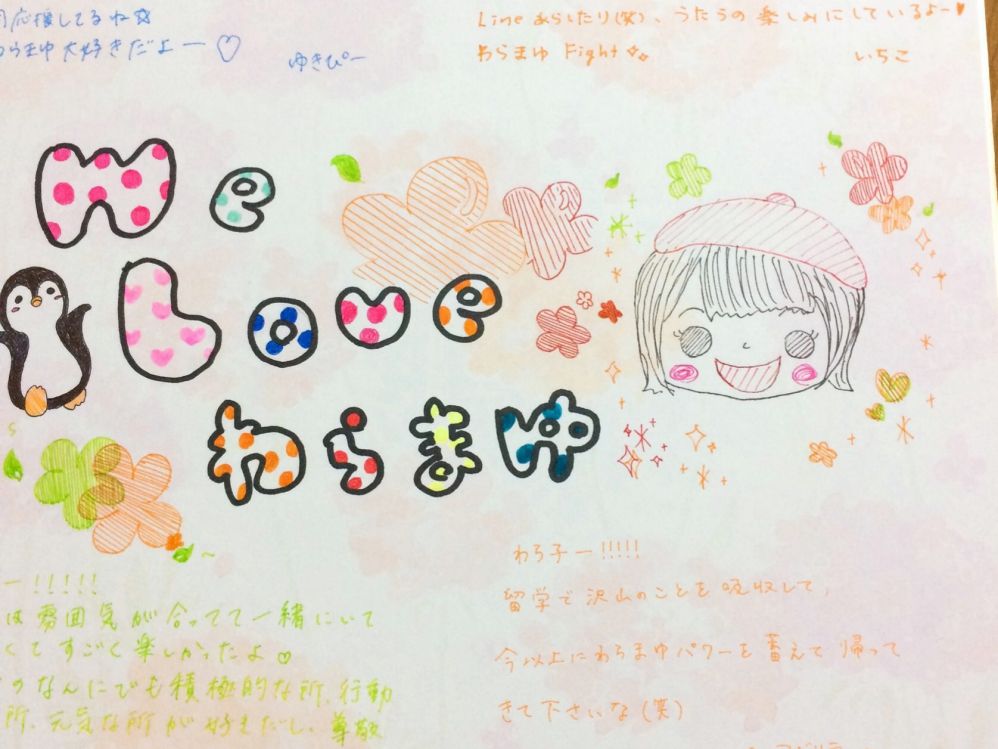 応援してるね☆
わらまゆ大好きだよー♡
ゆきぴー
Lineあらしたり(笑)、うたうの楽しみにしているよー♥
わらまゆ Fight
いちこ
We
Love
わらまゆ
ー!!!!!
は雰囲気が合ってて一緒にいて
くてすごく楽しかったよ♡
のなんにでも積極的な所、行動
所、元気な所が好きだし、尊敬
わら子ー!!!!!
留学で沢山のことを吸収して、
今以上にわらまゆパワーを蓄えて帰って
きて下さいな(笑)